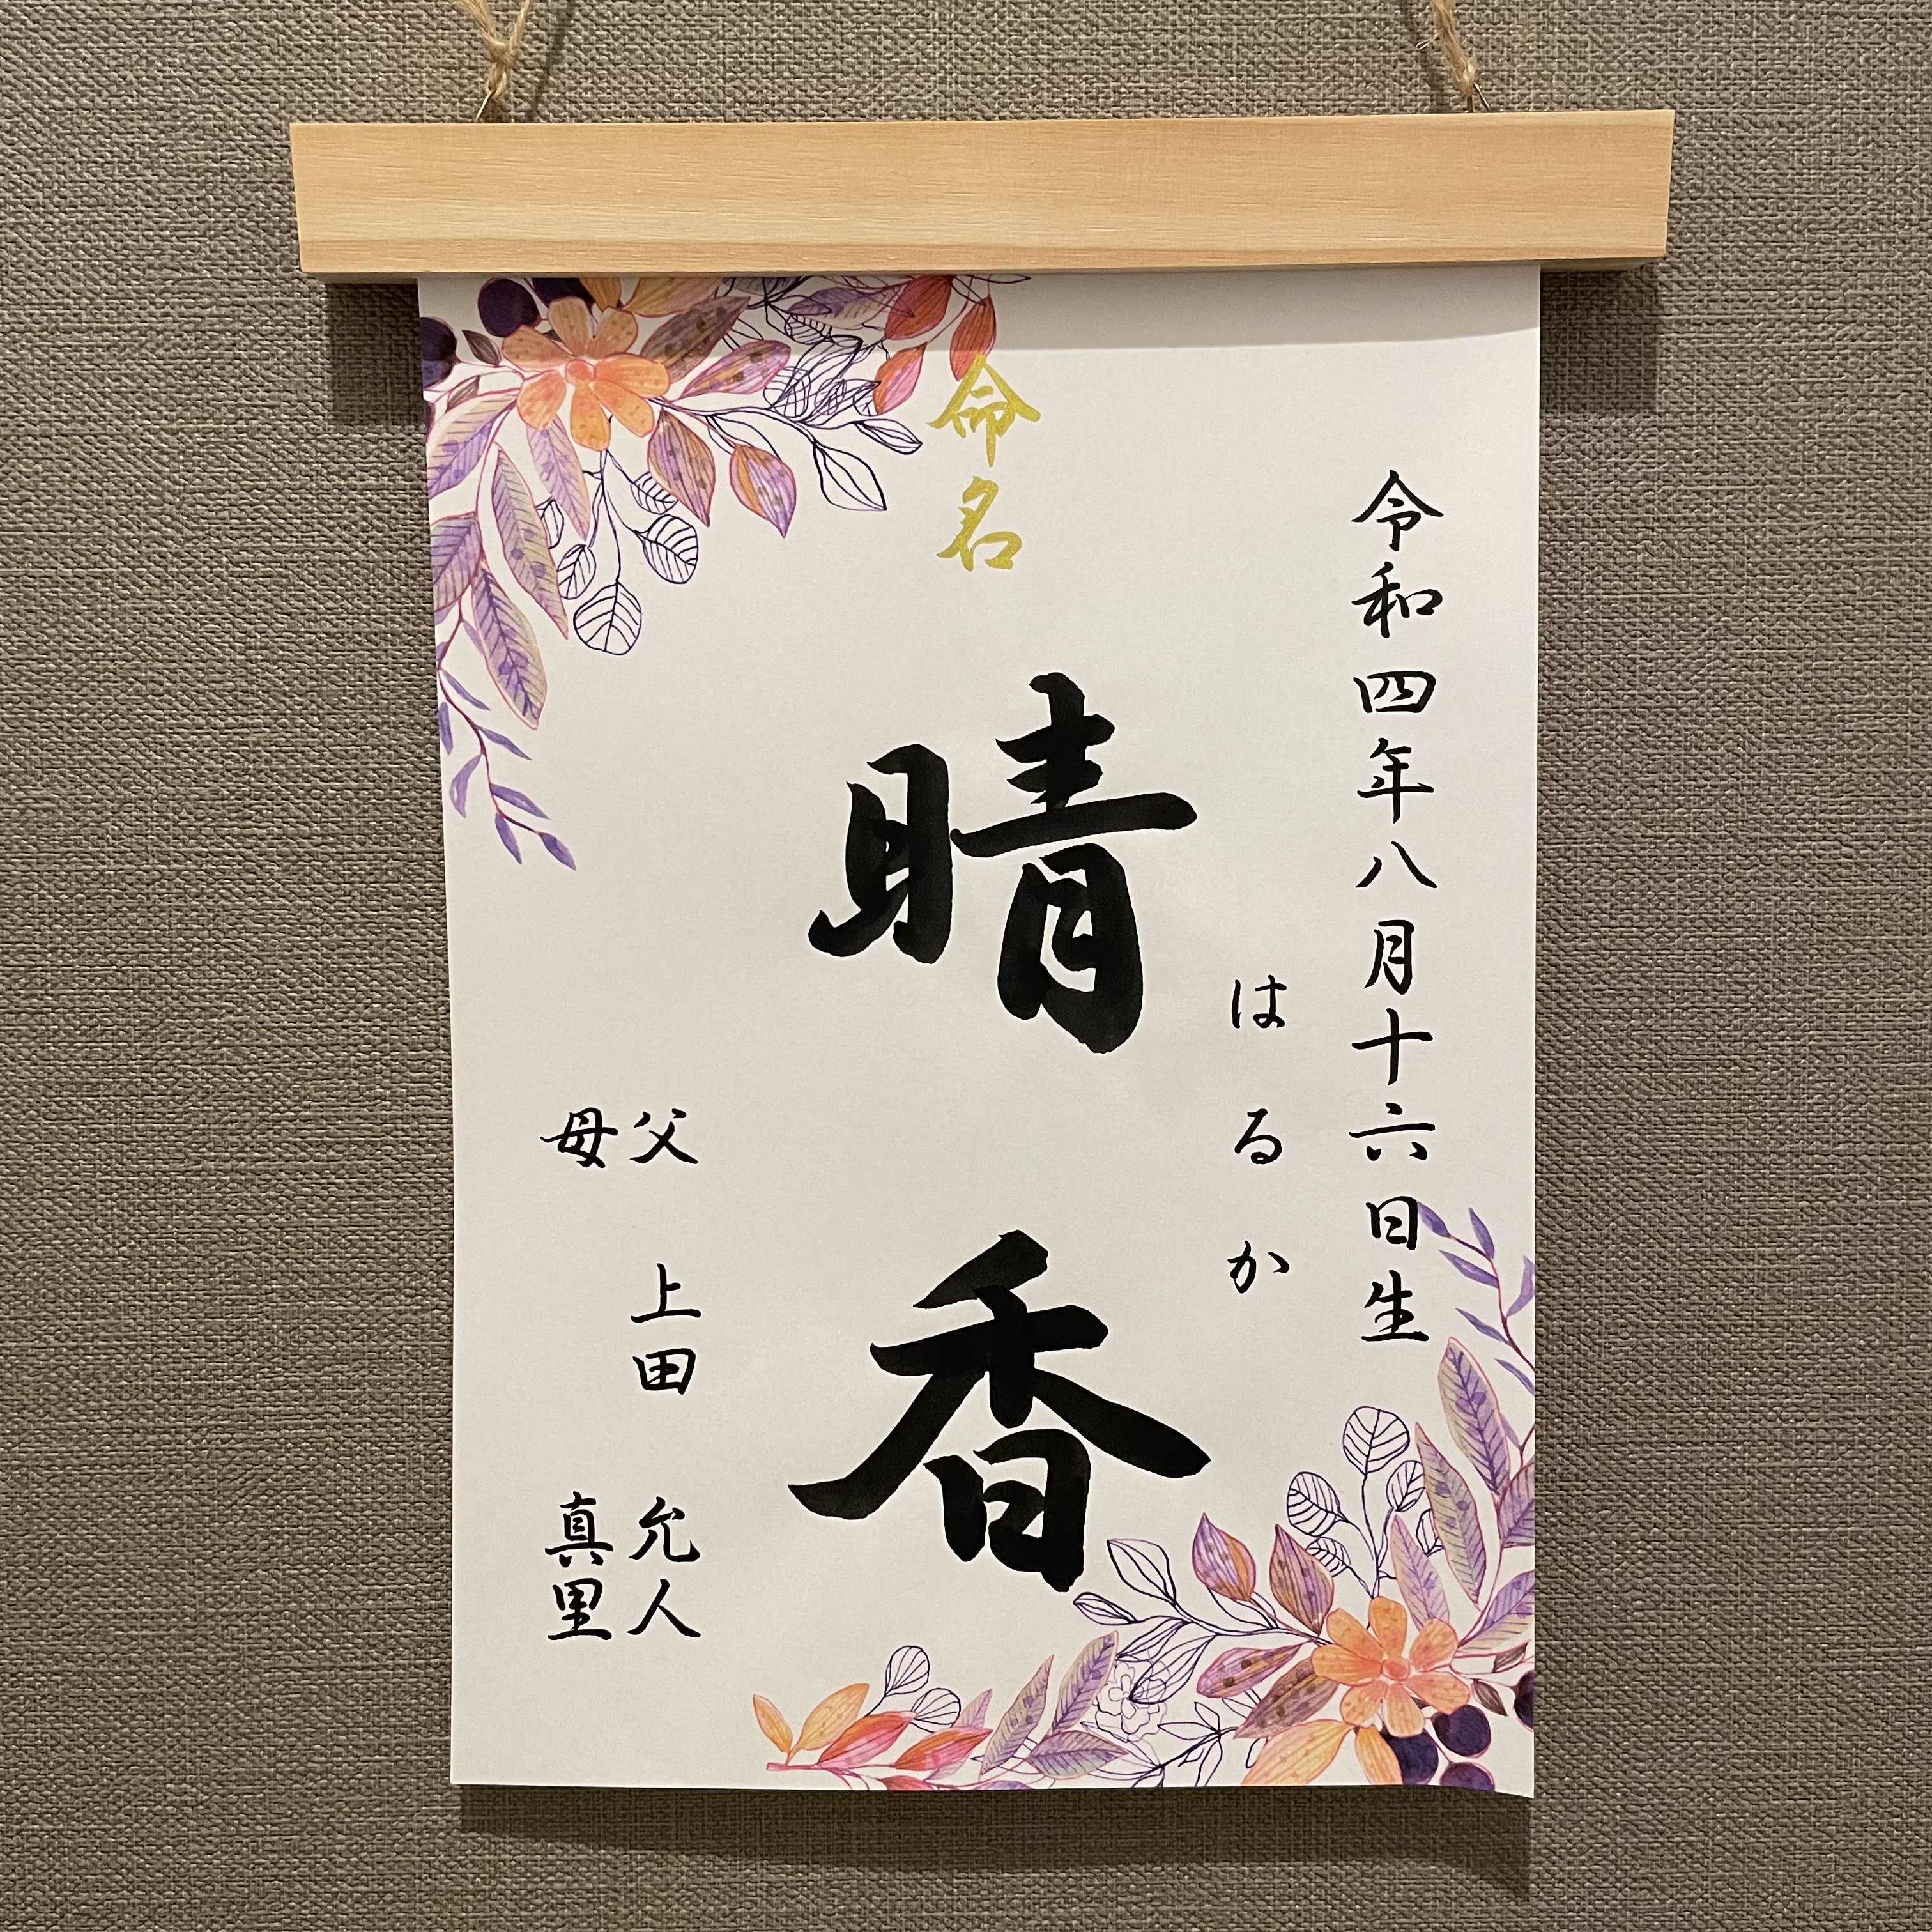 令和四年八月十六日生
はるか
命名
晴香
父 上田 允人
母 真里